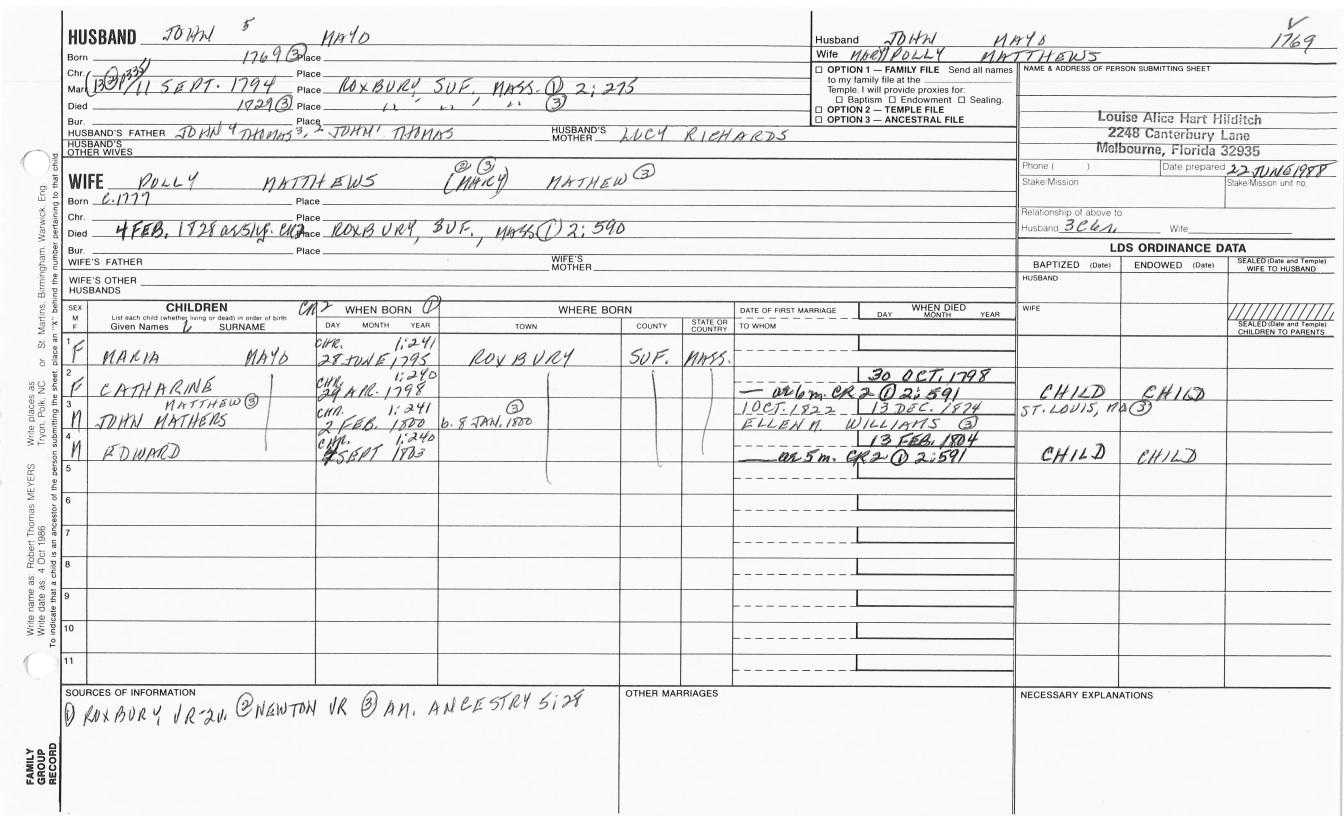 HUSBAND JOHN 5 MAYO
Born 1769 ③ Place
Chr. Place
Marr 11 SEPT. 1794 Place ROXBURY, SUF, MASS. ① 2:275
Died 1829 ③ Place " " " " ③
Bur. Place
HUSBAND'S FATHER JOHN 4 THOMAS 3, 2 JOHN 1 THOMAS HUSBAND'S MOTHER LUCY RICHARDS
HUSBAND'S OTHER WIVES
Husband JOHN MAYO 1769
Wife MARY/POLLY MATTHEWS
☐ OPTION 1 — FAMILY FILE Send all names
to my family file at the
Temple. I will provide proxies for:
☐ Baptism ☐ Endowment ☐ Sealing.
☐ OPTION 2 — TEMPLE FILE
☐ OPTION 3 — ANCESTRAL FILE
NAME & ADDRESS OF PERSON SUBMITTING SHEET
Louise Alice Hart Hilditch
2248 Canterbury Lane
Melbourne, Florida 32935
Phone ( ) Date prepared 22 JUNE 1988
Stake/Mission Stake/Mission unit no.
Relationship of above to
Husband Wife
② ③
WIFE POLLY MATTHEWS (MARY) MATHEW ③
Born C.1777 Place
Chr. Place
Died 4 FEB. 1828 Place ROXBURY, SUF., MASS ① 2:590
Bur. Place
WIFE'S FATHER WIFE'S MOTHER
WIFE'S OTHER HUSBANDS
LDS ORDINANCE DATA
BAPTIZED (Date) ENDOWED (Date) SEALED (Date and Temple) WIFE TO HUSBAND
HUSBAND
WIFE
SEALED (Date and Temple) CHILDREN TO PARENTS
SEX M F CHILDREN CR2 WHEN BORN ① WHERE BORN DATE OF FIRST MARRIAGE WHEN DIED
List each child (whether living or dead) in order of birth
Given Names SURNAME DAY MONTH YEAR TOWN COUNTY STATE OR COUNTRY TO WHOM DAY MONTH YEAR
1 CHR. 1:241
F MARIA MAYO 28 JUNE 1795 ROXBURY SUF. MASS.
2 CHR. 1:240 30 OCT. 1798
F CATHARINE 29 APR. 1798 — ae 6 m. CR 2 ① 2:591 CHILD CHILD
3 MATTHEW ③ CHR. 1:241 ③ 1 OCT. 1822 13 DEC. 1874 ST. LOUIS, MO ③
M JOHN MATHERS 2 FEB. 1800 b. 8 JAN. 1800 ELLEN M. WILLIAMS ③
4 CHR. 1:240 13 FEB. 1804
M EDWARD SEPT 1803 — ae 5 m. CR 2 ① 2:591 CHILD CHILD
5
6
7
8
9
10
11
SOURCES OF INFORMATION
① ROXBURY, VR-2v. ② NEWTON VR ③ AM. ANCESTRY 5:28
OTHER MARRIAGES
NECESSARY EXPLANATIONS
Write name as: Robert Thomas MEYERS Write places as: Tryon, Polk, NC or St. Martins, Birmingham, Warwick, Eng.
Write date as: 4 Oct 1986
To indicate that a child is an ancestor of the person submitting the sheet, place an "X" behind the number pertaining to that child
FAMILY
GROUP
RECORD